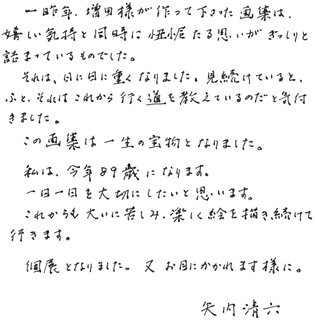 一昨年、増田様が作って下さった画集は、
嬉しい気持と同時に忸怩たる思いがぎっしりと
詰まっているものでした。
それは、日に日に重くなりました。見続けていると、
ふと、それはこれから行く道を教えているのだと気付
きました。
この画集は一生の宝物となりました。
私は、今年89歳になります。
一日一日を大切にしたいと思います。
これからも大いに苦しみ、楽しく絵を描き続けて
行きます。
個展となりました。又お目にかかれます様に。
矢内清六